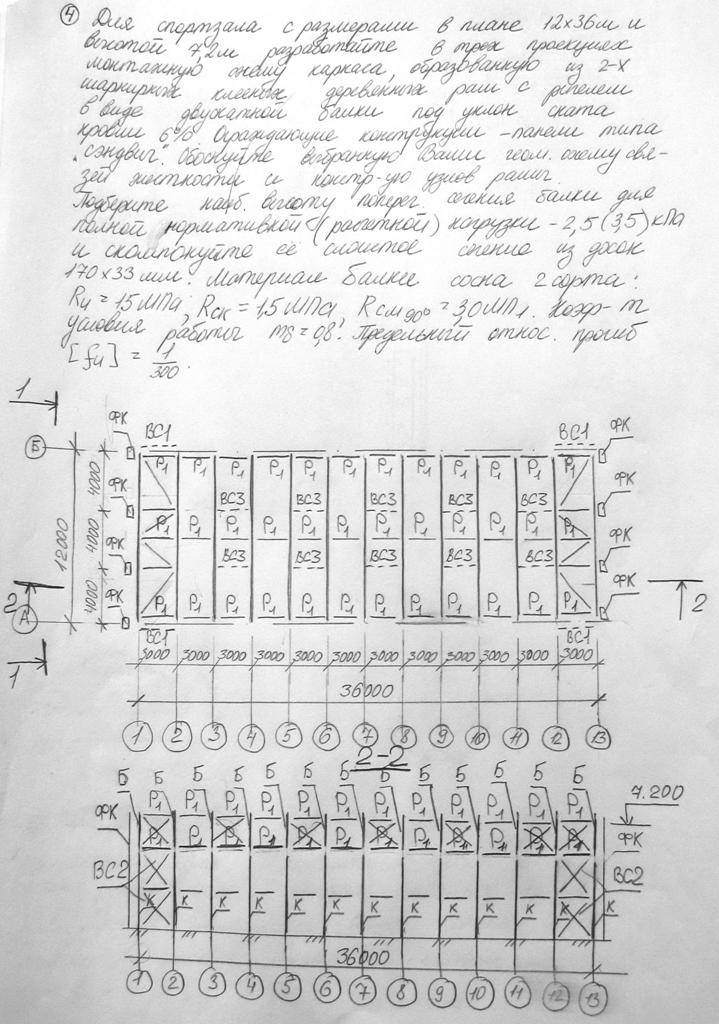 ④ Для спортзала с размерами в плане 12х36м и
высотой 7,2м разработайте в трех проекциях
монтажную схему каркаса, образованную из 2-х
шарнирных клееных деревянных рам с ригелем
в виде двускатной балки под уклон ската
кровли 6%. Ограждающие конструкции - панели типа
"сэндвич". Обоснуйте выбранную Вами геом. схему свя-
зей жесткости и констр-ую узлов рамы.
Подберите наиб. высоту попереч. сечения балки для
полной нормативной (расчетной) нагрузки - 2,5 (3,5) кПа
и скомпонуйте ее слоистое сечение из досок
170х33 мм. Материал балки сосна 2 сорта:
Rи = 15 МПа, Rск = 1,5 МПа, Rсм90° = 3,0 МПа. Коэф-т
условия работы mб = 0,8. Предельный относ. прогиб
[fи] = 1/300.
1
ФК ВС1 ВС1 ФК
Б
Р1 Р1 Р1 Р1 Р1 Р1 Р1 Р1 Р1 Р1 Р1 Р1
4000
ФК ВС3 ВС3 ВС3 ВС3 ВС3 ФК
Р1 Р1 Р1 Р1 Р1 Р1 Р1 Р1 Р1 Р1 Р1 Р1
12000 4000
ФК ВС3 ВС3 ВС3 ВС3 ВС3 ФК
4000
2 ФК Р1 Р1 Р1 Р1 Р1 Р1 Р1 Р1 Р1 Р1 Р1 Р1 ФК 2
А
ВС1 ВС1
1 3000 3000 3000 3000 3000 3000 3000 3000 3000 3000 3000 3000
36000
1 2 3 4 5 6 7 8 9 10 11 12 13
2-2
Б Б Б Б Б Б Б Б Б Б Б Б
Р1 Р1 Р1 Р1 Р1 Р1 Р1 Р1 Р1 Р1 Р1 Р1 7.200
ФК Р1 Р1 Р1 Р1 Р1 Р1 Р1 Р1 Р1 Р1 Р1 Р1 ФК
ВС2 ВС2
К К К К К К К К К К К К К
36000
1 2 3 4 5 6 7 8 9 10 11 12 13